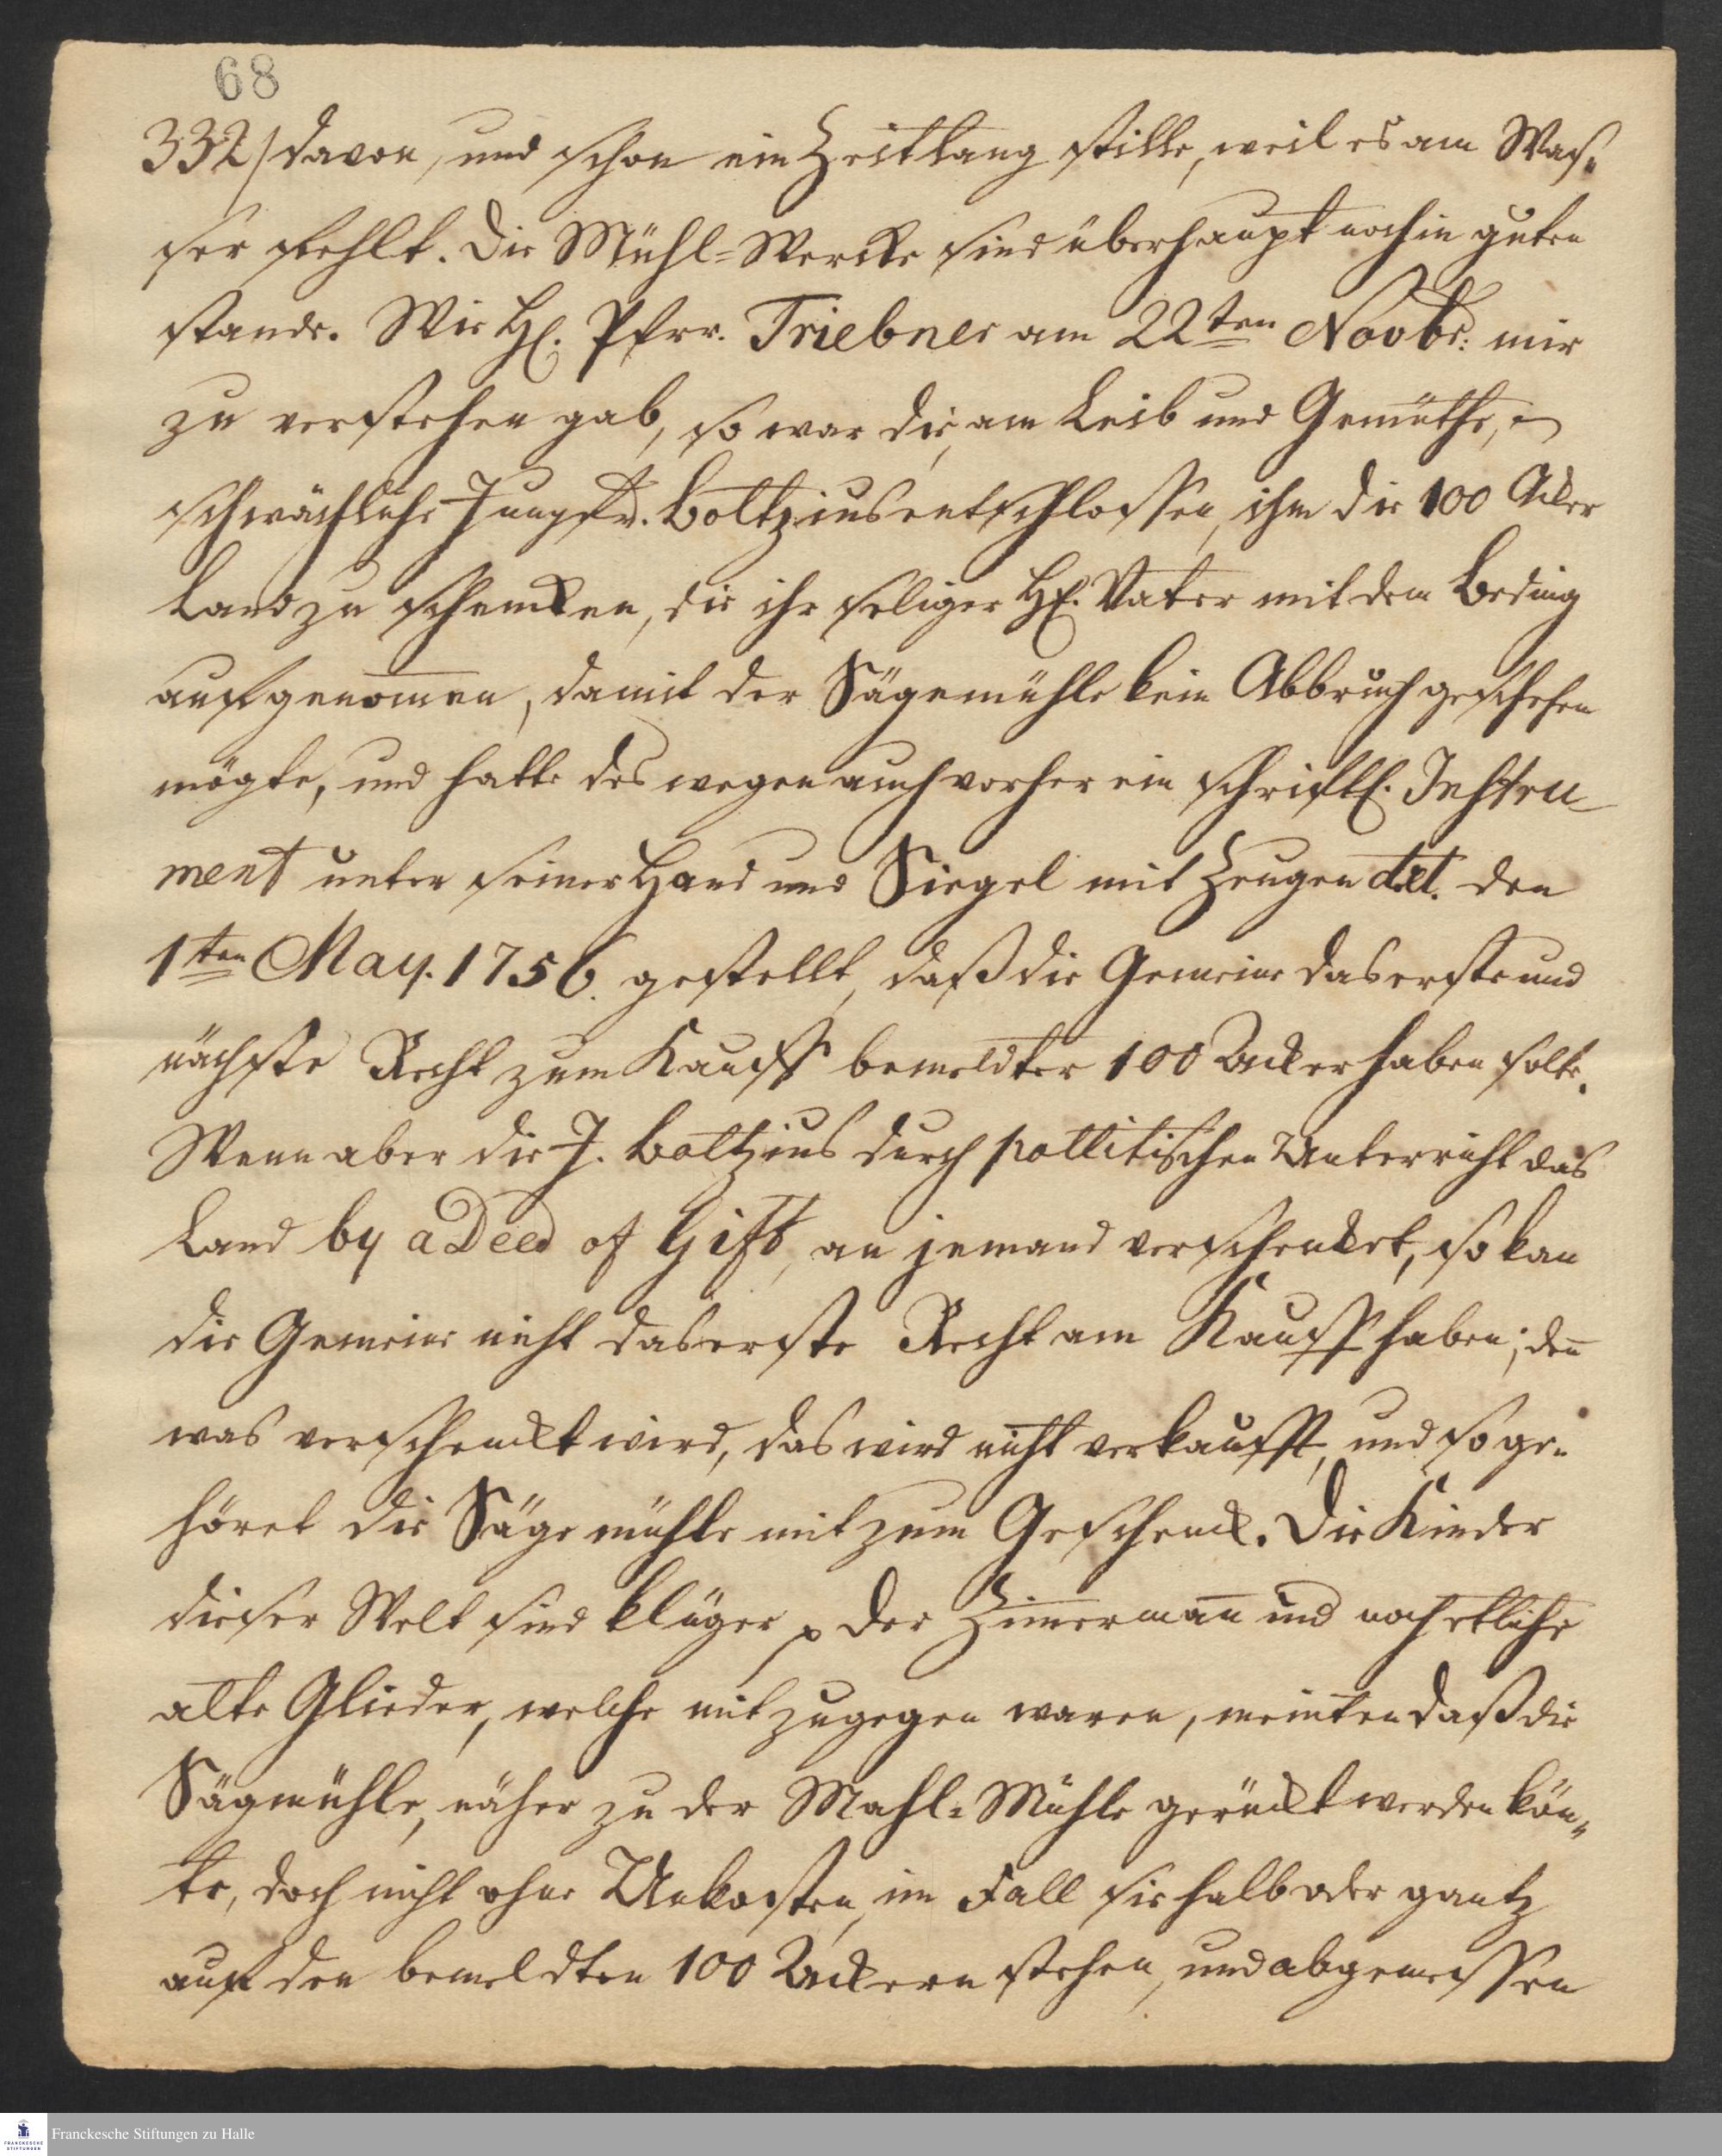 68
332/ davon, und schon ein Zeitlang stille, weil es am Was-
ser fehlt. Die Mühl-Wercke sind überhaupt noch in guten
stande. Wie H. Pfrr. Triebner am 22ten Novbr: mir
zu verstehen gab, so war die, am Leib und Gemüthe,
schwächliche Jungfr. Boltzius entschlossen, ihm die 100 Acker
Land zu schencken, die ihr seliger H. Vater mit dem Beding
aufgenom̄en, damit der Sägemühle kein Abbruch geschehen
mögte, und hatte des wegen auch vorher ein schriftl. Instru-
ment unter seiner Hand und Siegel mit Zeugen dat. den
1ten May. 1756. gestellt, daß die Gemeine das erste und
nächste Recht zum Kauff bemeldter 100 Acker haben solte.
Wenn aber die J. Boltzius durch pollitischen Unterricht das
Land by a Deed of Gift, an jemand verschencket, so kan
die Gemeine nicht das erste Recht am Kauff haben; den̄
was verschenckt wird, das wird nicht verkaufft, und so ge-
höret die Säge mühle mit zum Geschenck. Die Kinder
dieser Welt sind klüger p Der Zim̄erman̄ und noch etliche
alte Glieder, welche mit zugegen waren, meinten daß die
Sägmühle, näher zu der Mahl-Mühle gerückt werden kön-
te, doch nicht ohne Unkosten, im Fall sie halb oder gantz
auf den bemeldten 100 Ackern stehen, und abgemessen
FRANCKESCHE STIFTUNGEN
Franckesche Stiftungen zu Halle